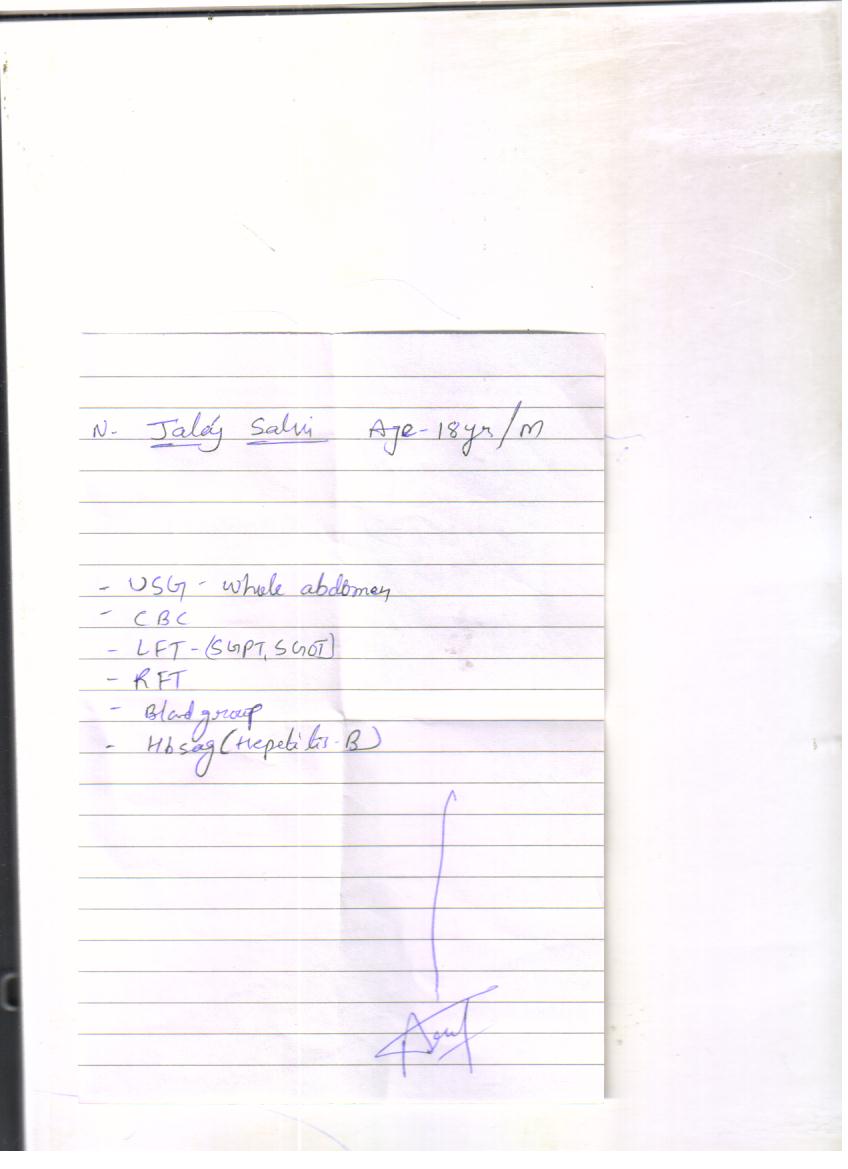 N- Jalaj Salvi Age-18yr/M
- USG - whole abdomen
- CBC
- LFT-(SGPT, SGOT)
- RFT
- Blood group
- Hbsag (Hepetitis-B)